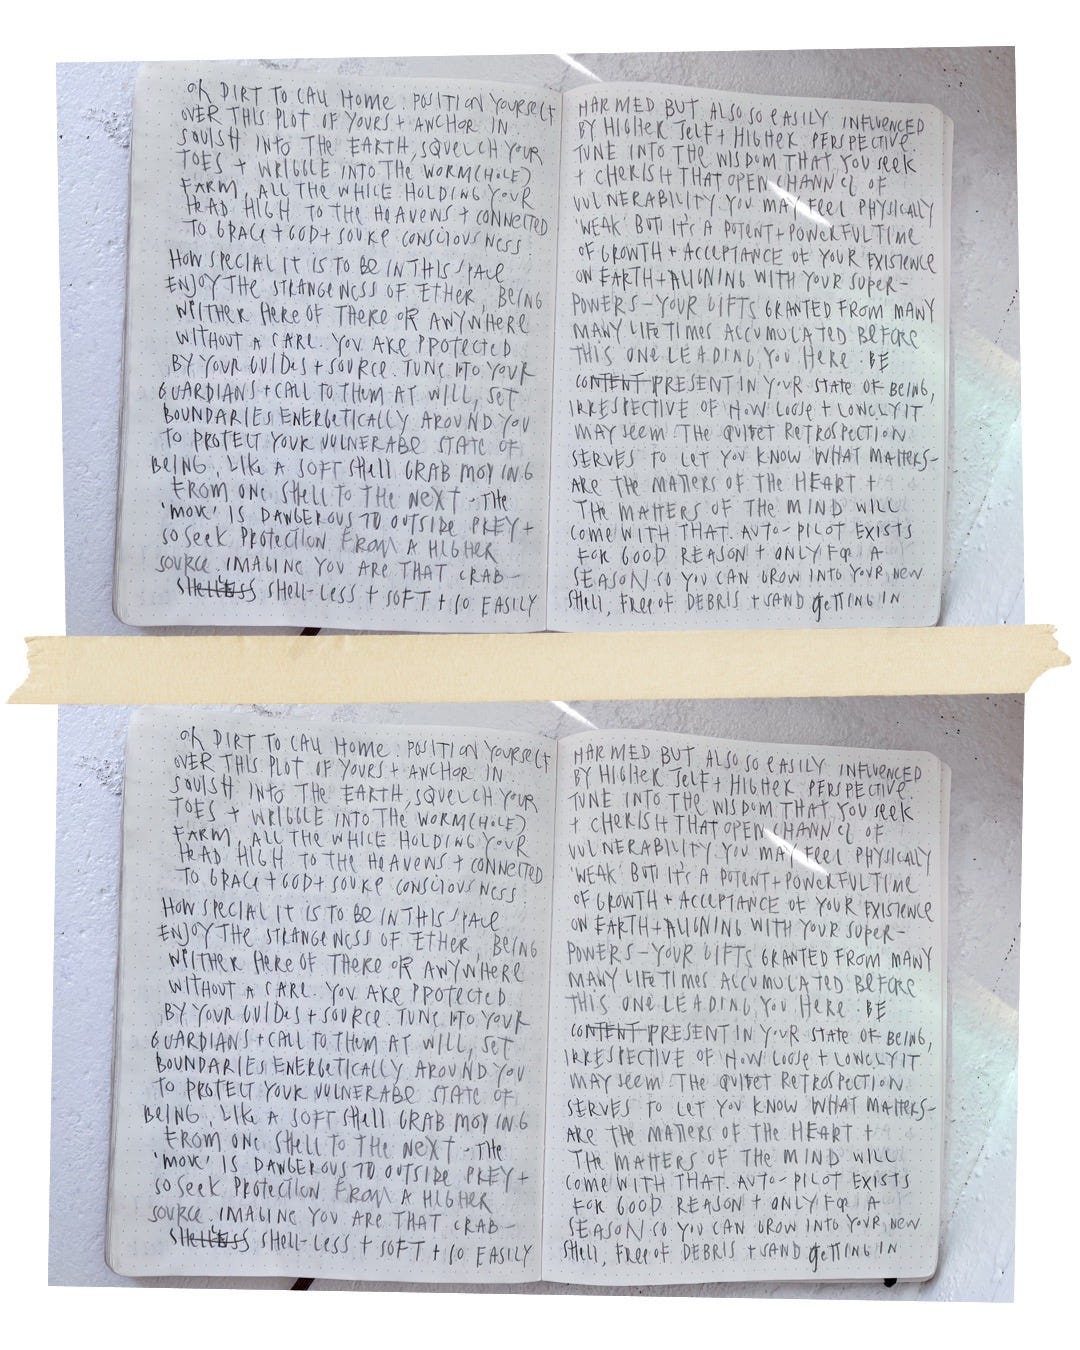 OF DIRT TO CALL HOME. POSITION YOURSELF
OVER THIS PLOT OF YOURS + ANCHOR IN
SQUISH INTO THE EARTH, SQUELCH YOUR
TOES + WRIGGLE INTO THE WORM(HOLE)
FARM, ALL THE WHILE HOLDING YOUR
HEAD HIGH TO THE HEAVENS + CONNECTED
TO GRACE + GOD + SOURCE CONSCIOUSNESS.
HOW SPECIAL IT IS TO BE IN THIS SPACE
ENJOY THE STRANGENESS OF ETHER, BEING
NEITHER HERE OF THERE OR ANYWHERE
WITHOUT A CARE. YOU ARE PROTECTED
BY YOUR GUIDES + SOURCE. TUNE INTO YOUR
GUARDIANS + CALL TO THEM AT WILL, SET
BOUNDARIES ENERGETICALLY AROUND YOU
TO PROTECT YOUR VULNERABE STATE OF
BEING, LIKE A SOFT SHELL CRAB MOVING
FROM ONE SHELL TO THE NEXT - THE
'MOVE' IS DANGEROUS TO OUTSIDE PREY +
SO SEEK PROTECTION FROM A HIGHER
SOURCE. IMAGINE YOU ARE THAT CRAB -
SHELL-LESS + SOFT + SO EASILY
HARMED BUT ALSO SO EASILY INFLUENCED
BY HIGHER SELF + HIGHER PERSPECTIVE.
TUNE INTO THE WISDOM THAT YOU SEEK
+ CHERISH THAT OPEN CHANNEL OF
VULNERABILITY. YOU MAY FEEL PHYSICALLY
'WEAK' BUT IT'S A POTENT + POWERFUL TIME
OF GROWTH + ACCEPTANCE OF YOUR EXISTENCE
ON EARTH + ALIGNING WITH YOUR SUPER-
POWERS - YOUR GIFTS GRANTED FROM MANY
MANY LIFETIMES ACCUMULATED BEFORE
THIS ONE LEADING YOU HERE. BE
CONTENT PRESENT IN YOUR STATE OF BEING,
IRRESPECTIVE OF HOW LOOSE + LONELY IT
MAY SEEM. THE QUIET RETROSPECTION
SERVES TO LET YOU KNOW WHAT MATTERS -
ARE THE MATTERS OF THE HEART +
THE MATTERS OF THE MIND WILL
COME WITH THAT. AUTO-PILOT EXISTS
FOR GOOD REASON + ONLY FOR A
SEASON SO YOU CAN GROW INTO YOUR NEW
SHELL, FREE OF DEBRIS + SAND GETTING IN
OF DIRT TO CALL HOME. POSITION YOURSELF
OVER THIS PLOT OF YOURS + ANCHOR IN
SQUISH INTO THE EARTH, SQUELCH YOUR
TOES + WRIGGLE INTO THE WORM(HOLE)
FARM, ALL THE WHILE HOLDING YOUR
HEAD HIGH TO THE HEAVENS + CONNECTED
TO GRACE + GOD + SOURCE CONSCIOUSNESS.
HOW SPECIAL IT IS TO BE IN THIS SPACE
ENJOY THE STRANGENESS OF ETHER, BEING
NEITHER HERE OF THERE OR ANYWHERE
WITHOUT A CARE. YOU ARE PROTECTED
BY YOUR GUIDES + SOURCE. TUNE INTO YOUR
GUARDIANS + CALL TO THEM AT WILL, SET
BOUNDARIES ENERGETICALLY AROUND YOU
TO PROTECT YOUR VULNERABE STATE OF
BEING, LIKE A SOFT SHELL CRAB MOVING
FROM ONE SHELL TO THE NEXT - THE
'MOVE' IS DANGEROUS TO OUTSIDE PREY +
SO SEEK PROTECTION FROM A HIGHER
SOURCE. IMAGINE YOU ARE THAT CRAB -
SHELL-LESS + SOFT + SO EASILY
HARMED BUT ALSO SO EASILY INFLUENCED
BY HIGHER SELF + HIGHER PERSPECTIVE.
TUNE INTO THE WISDOM THAT YOU SEEK
+ CHERISH THAT OPEN CHANNEL OF
VULNERABILITY. YOU MAY FEEL PHYSICALLY
'WEAK' BUT IT'S A POTENT + POWERFUL TIME
OF GROWTH + ACCEPTANCE OF YOUR EXISTENCE
ON EARTH + ALIGNING WITH YOUR SUPER-
POWERS - YOUR GIFTS GRANTED FROM MANY
MANY LIFETIMES ACCUMULATED BEFORE
THIS ONE LEADING YOU HERE. BE
CONTENT PRESENT IN YOUR STATE OF BEING,
IRRESPECTIVE OF HOW LOOSE + LONELY IT
MAY SEEM. THE QUIET RETROSPECTION
SERVES TO LET YOU KNOW WHAT MATTERS -
ARE THE MATTERS OF THE HEART +
THE MATTERS OF THE MIND WILL
COME WITH THAT. AUTO-PILOT EXISTS
FOR GOOD REASON + ONLY FOR A
SEASON SO YOU CAN GROW INTO YOUR NEW
SHELL, FREE OF DEBRIS + SAND GETTING IN